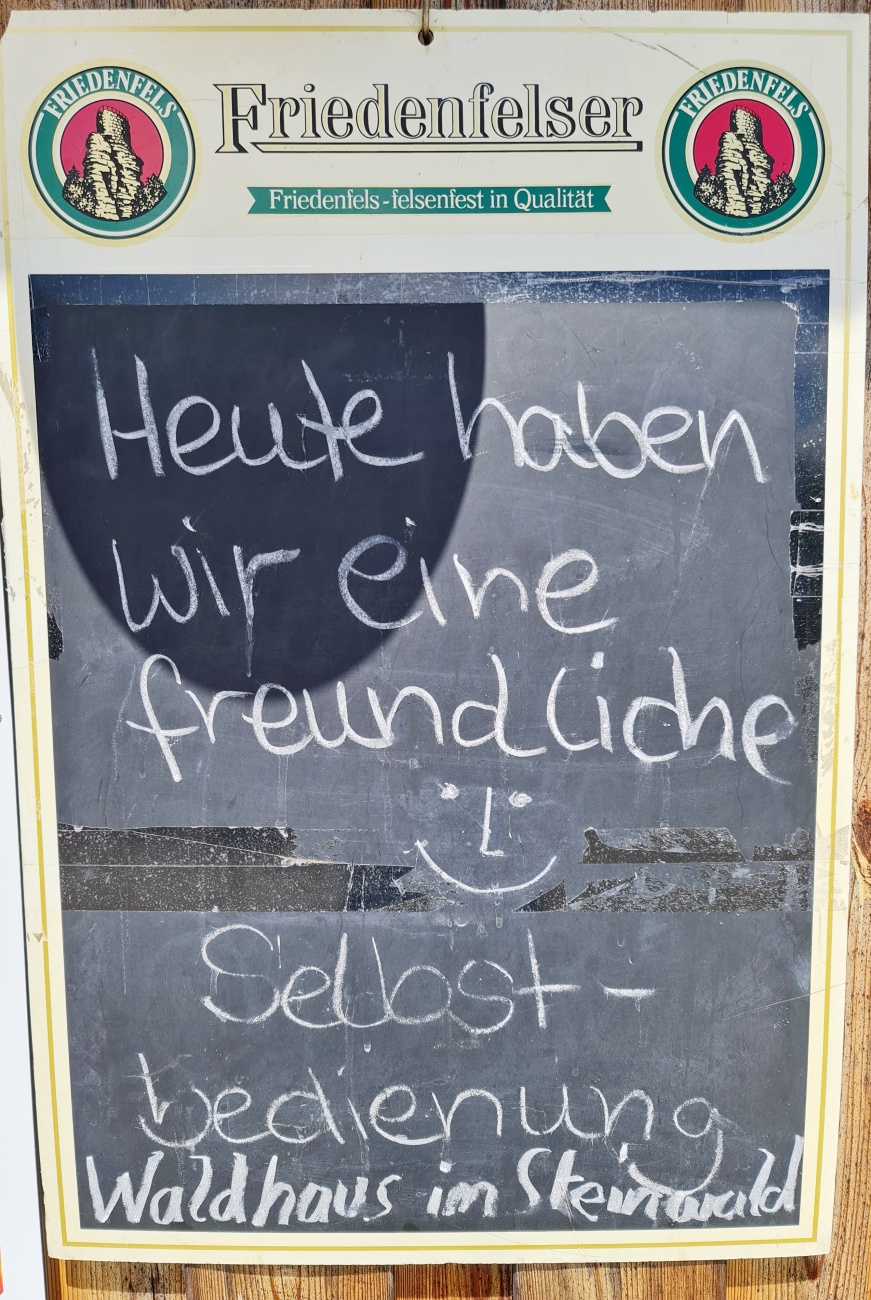 FRIEDENFELS
Friedenfelser
FRIEDENFELS
Friedenfels-felsenfest in Qualität
Heute haben
wir eine
freundliche
Selbst-
bedienung
Waldhaus im Steinwald